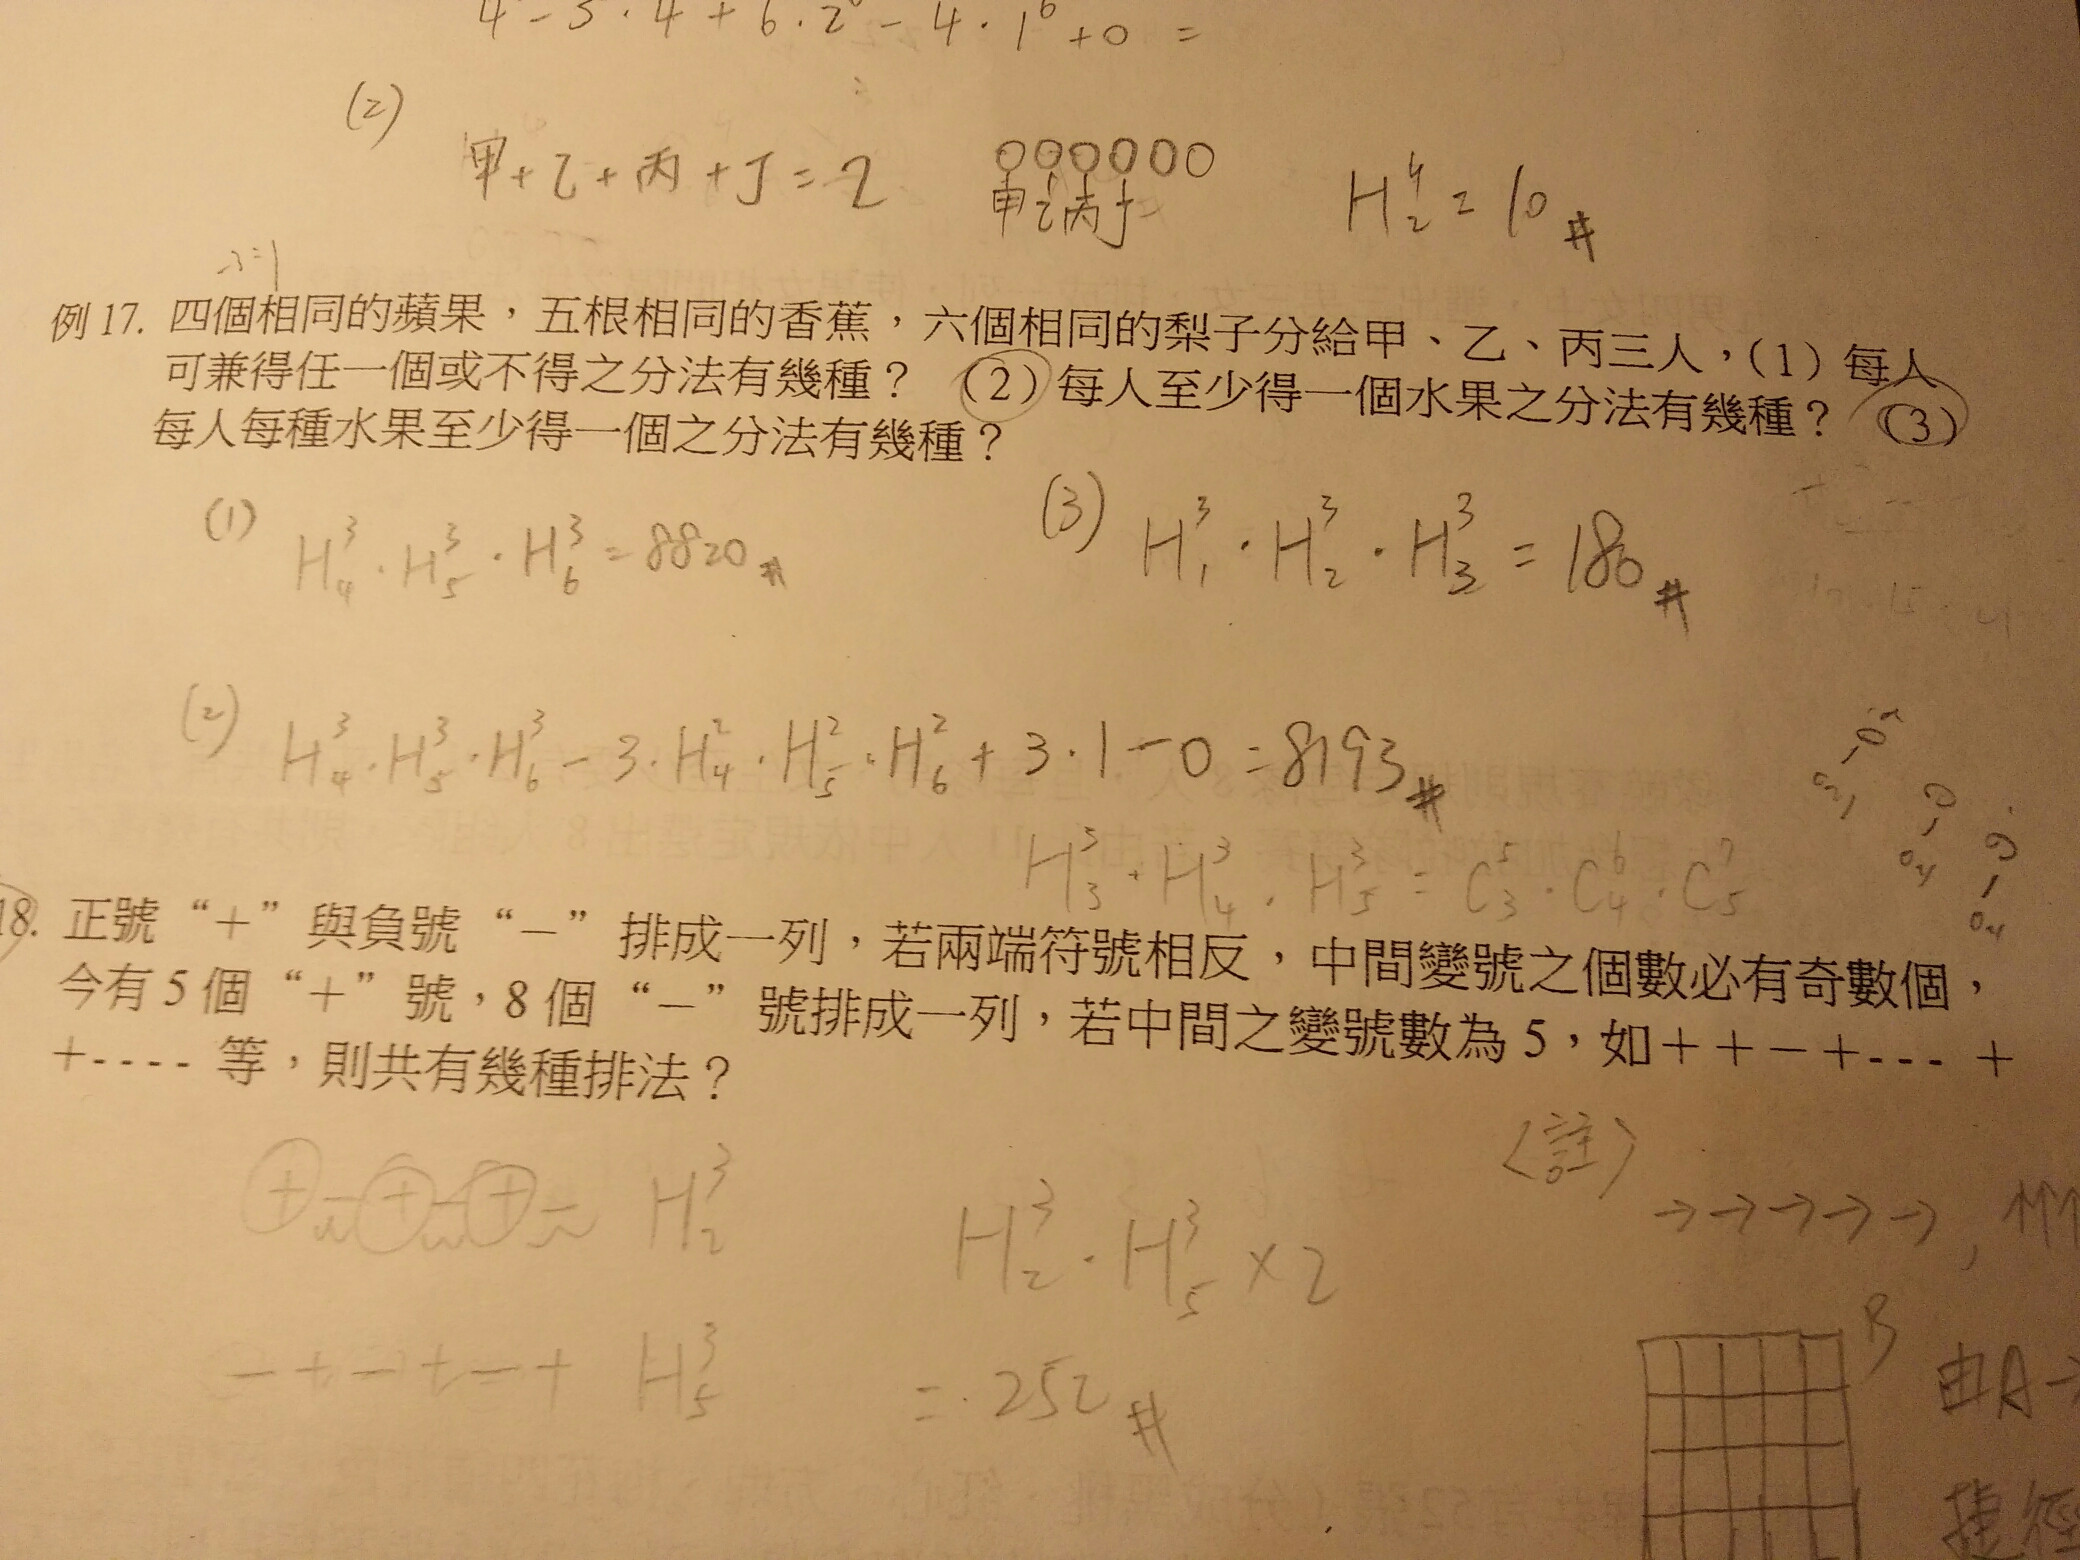 4 - 5·4 + 6·2⁶ - 4·1⁶ + 0 =
(2)
甲+乙+丙+丁=2 OOOOOO H⁴₂ = 10 #
甲乙丙丁
例 17. 四個相同的蘋果，五根相同的香蕉，六個相同的梨子分給甲、乙、丙三人，(1) 每人
可兼得任一個或不得之分法有幾種？ (2) 每人至少得一個水果之分法有幾種？ (3)
每人每種水果至少得一個之分法有幾種？
(1) H³₄·H³₅·H³₆ = 8820 # (3) H³₁·H³₂·H³₃ = 180 #
(2) H³₄·H³₅·H³₆ - 3·H²₄·H²₅·H²₆ + 3·1 - 0 = 8193 #
H³₃·H³₄·H³₅ = C⁵₃·C⁶₄·C⁷₅
18. 正號“＋”與負號“－”排成一列，若兩端符號相反，中間變號之個數必有奇數個，
今有 5 個“＋”號，8 個“－”號排成一列，若中間之變號數為 5，如＋＋－＋--- ＋
+---- 等，則共有幾種排法？
〈註〉
+ - + - + - H³₂ H³₂·H³₅ × 2
→→→→→, ↑↑↑
- + - + - + H³₅ = 252 #
B
由A→
捷徑